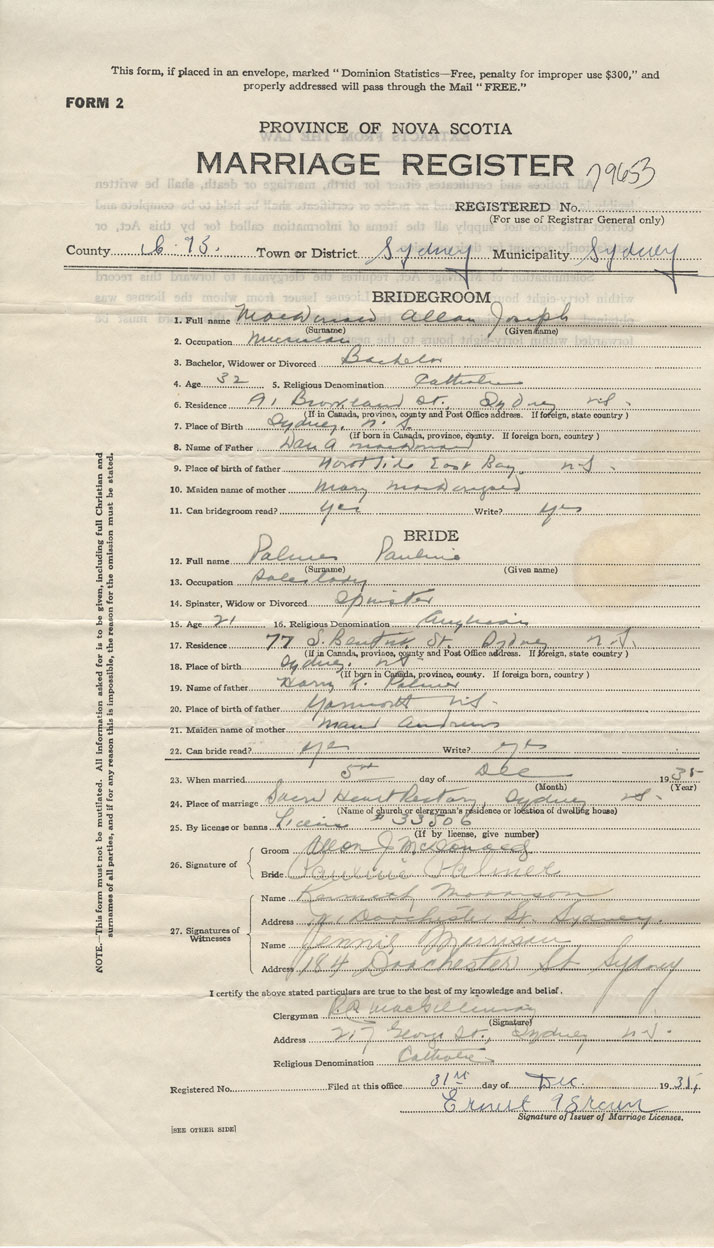 This form, if placed in an envelope, marked "Dominion Statistics—Free, penalty for improper use $300," and
properly addressed will pass through the Mail "FREE."
FORM 2
PROVINCE OF NOVA SCOTIA
MARRIAGE REGISTER 79653
REGISTERED No.
(For use of Registrar General only)
County C. B. Town or District Sydney Municipality Sydney
BRIDEGROOM
1. Full name Allan Joseph
(Surname) (Given name)
2. Occupation
3. Bachelor, Widower or Divorced Bachelor
4. Age 32 5. Religious Denomination Catholic
6. Residence St. Sydney N.S.
(If in Canada, province, county and Post Office address. If foreign, state country)
7. Place of Birth Sydney, N.S.
(If born in Canada, province, county. If foreign born, country)
8. Name of Father Dan A
9. Place of birth of father East Bay, N.S.
10. Maiden name of mother Mary
11. Can bridegroom read? yes Write? yes
BRIDE
12. Full name Palmer Pauline
(Surname) (Given name)
13. Occupation Saleslady
14. Spinster, Widow or Divorced Spinster
15. Age 21 16. Religious Denomination Anglican
17. Residence 77 S. Bentick St. Sydney N.S.
(If in Canada, province, county and Post Office address. If foreign, state country)
18. Place of birth Sydney. N.S.
(If born in Canada, province, county. If foreign born, country)
19. Name of father Harry K. Palmer
20. Place of birth of father Yarmouth N.S.
21. Maiden name of mother Maud Andrews
22. Can bride read? yes Write? yes
23. When married 5th day of Dec 1935
(Month) (Year)
24. Place of marriage Sacred Heart Rectory, Sydney N.S.
(Name of church or clergyman's residence or location of dwelling house)
25. By license or banns License # 33506
(If by license, give number)
26. Signature of
Groom Allan J McDonald
Bride Pauline Palmer
27. Signatures of Witnesses
Name Kenneth Morrison
Address Dorchester St. Sydney.
Name Jennie Morrison
Address 184 Dorchester St Sydney
I certify the above stated particulars are true to the best of my knowledge and belief.
Clergyman MacGillivray
(Signature)
Address 217 George St., Sydney N.S.
Religious Denomination Catholic
Registered No. Filed at this office 31st day of Dec. 1935
Ernest Brown
Signature of Issuer of Marriage Licenses.
[SEE OTHER SIDE]
NOTE.—This form must not be mutilated. All information asked for is to be given, including full Christian and
surnames of all parties, and if for any reason this is impossible, the reason for the omission must be stated.